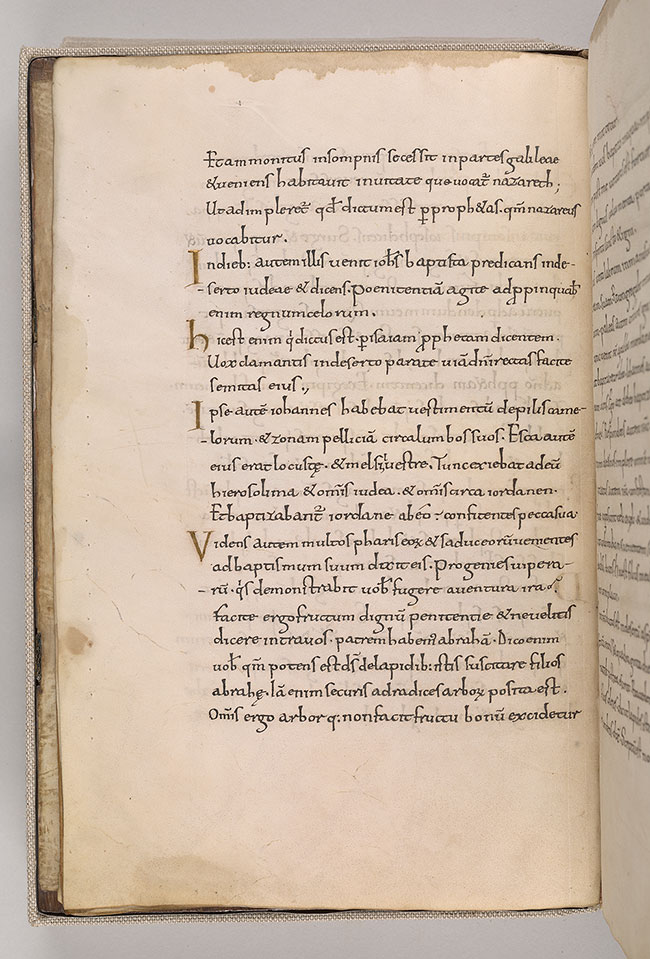 Et ammonitus insompnis secessit inpartes galileae
& veniens habitavit incivitate que vocat̄ nazareth;
Ut adimpleret̄ qd̄ dictum est p̱ proph&as. qm̄ nazareus
vocabitur.
Indieb: autem illis venit ioh̄s baptista predicans inde-
-serto iudeae & dicens. Poenitentiā agite adp̱pinquab̄
enim regnum celorum.
hic est enim q̇ dictus est. p̱ isaiam p̱ph&am dicentem.
Vox clamantis indeserto parate viā dn̄i rectas facite
semitas eius.,
Ipse autē iohannes habebat vestimentū depilis came-
-lorum. & zonam pelliciā circa lumbos suos. Esca autē
eius erat locustę. & mel silvestre. Tunc exiebat adeū
hierosolima & om̄s iudea. & om̄s circa iordanen.
Et baptizabant̄ iordane ab eo ÷ confitentes peccasua
Videns autem multos phariseoꝝ & saduceorū venientes
ad baptismum suum dixit eis. Progenies vipera-
-rū. q̇s demonstrabit vob̄ fugere aventura ira.
Facite ergo fructum dignū penitentie & nevelitis
dicere intra vos. patrem habem; abrahā. Dico enim
vob̄ qm̄ potens est ds̄ delapidib: istis suscitare filios
abrahę. Iā enim securis adradices arboꝝ posita est.
Om̄is ergo arbor q; non facit fructū bonū excidetur